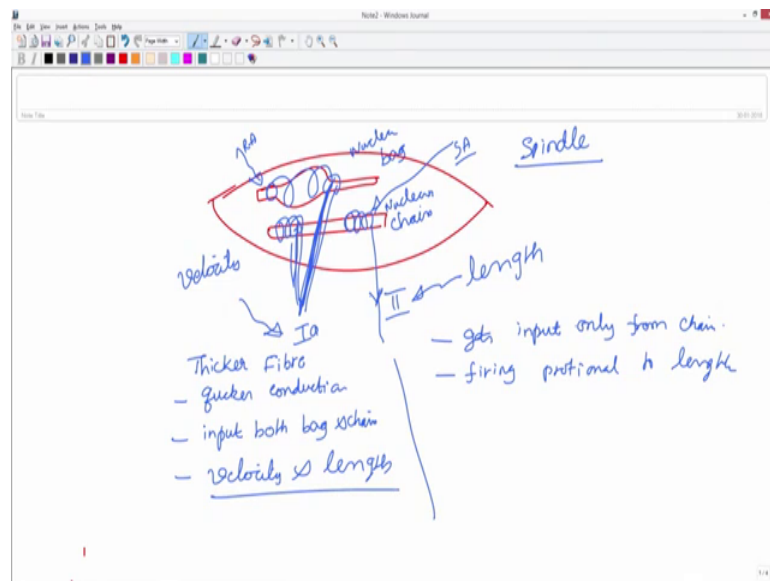 Note2 - Windows Journal
File Edit View Insert Actions Tools Help
Page Width
B I
Note Title
30-01-2018
RA
Nuclear
bag
SA
Spindle
Nuclear
chain
Velocity
length
Ia
II
Thicker Fibre
- qucker conduction
- input both bag & chain
- velocity & length
- gets input only from chain.
- firing protional to length
1/4